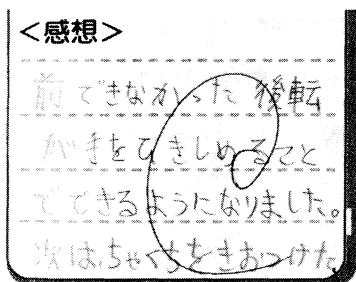 <感想>
前できなかった後転
が手をひきしめること
でできるようになりました。
次は、ちゃくちをきおつけた